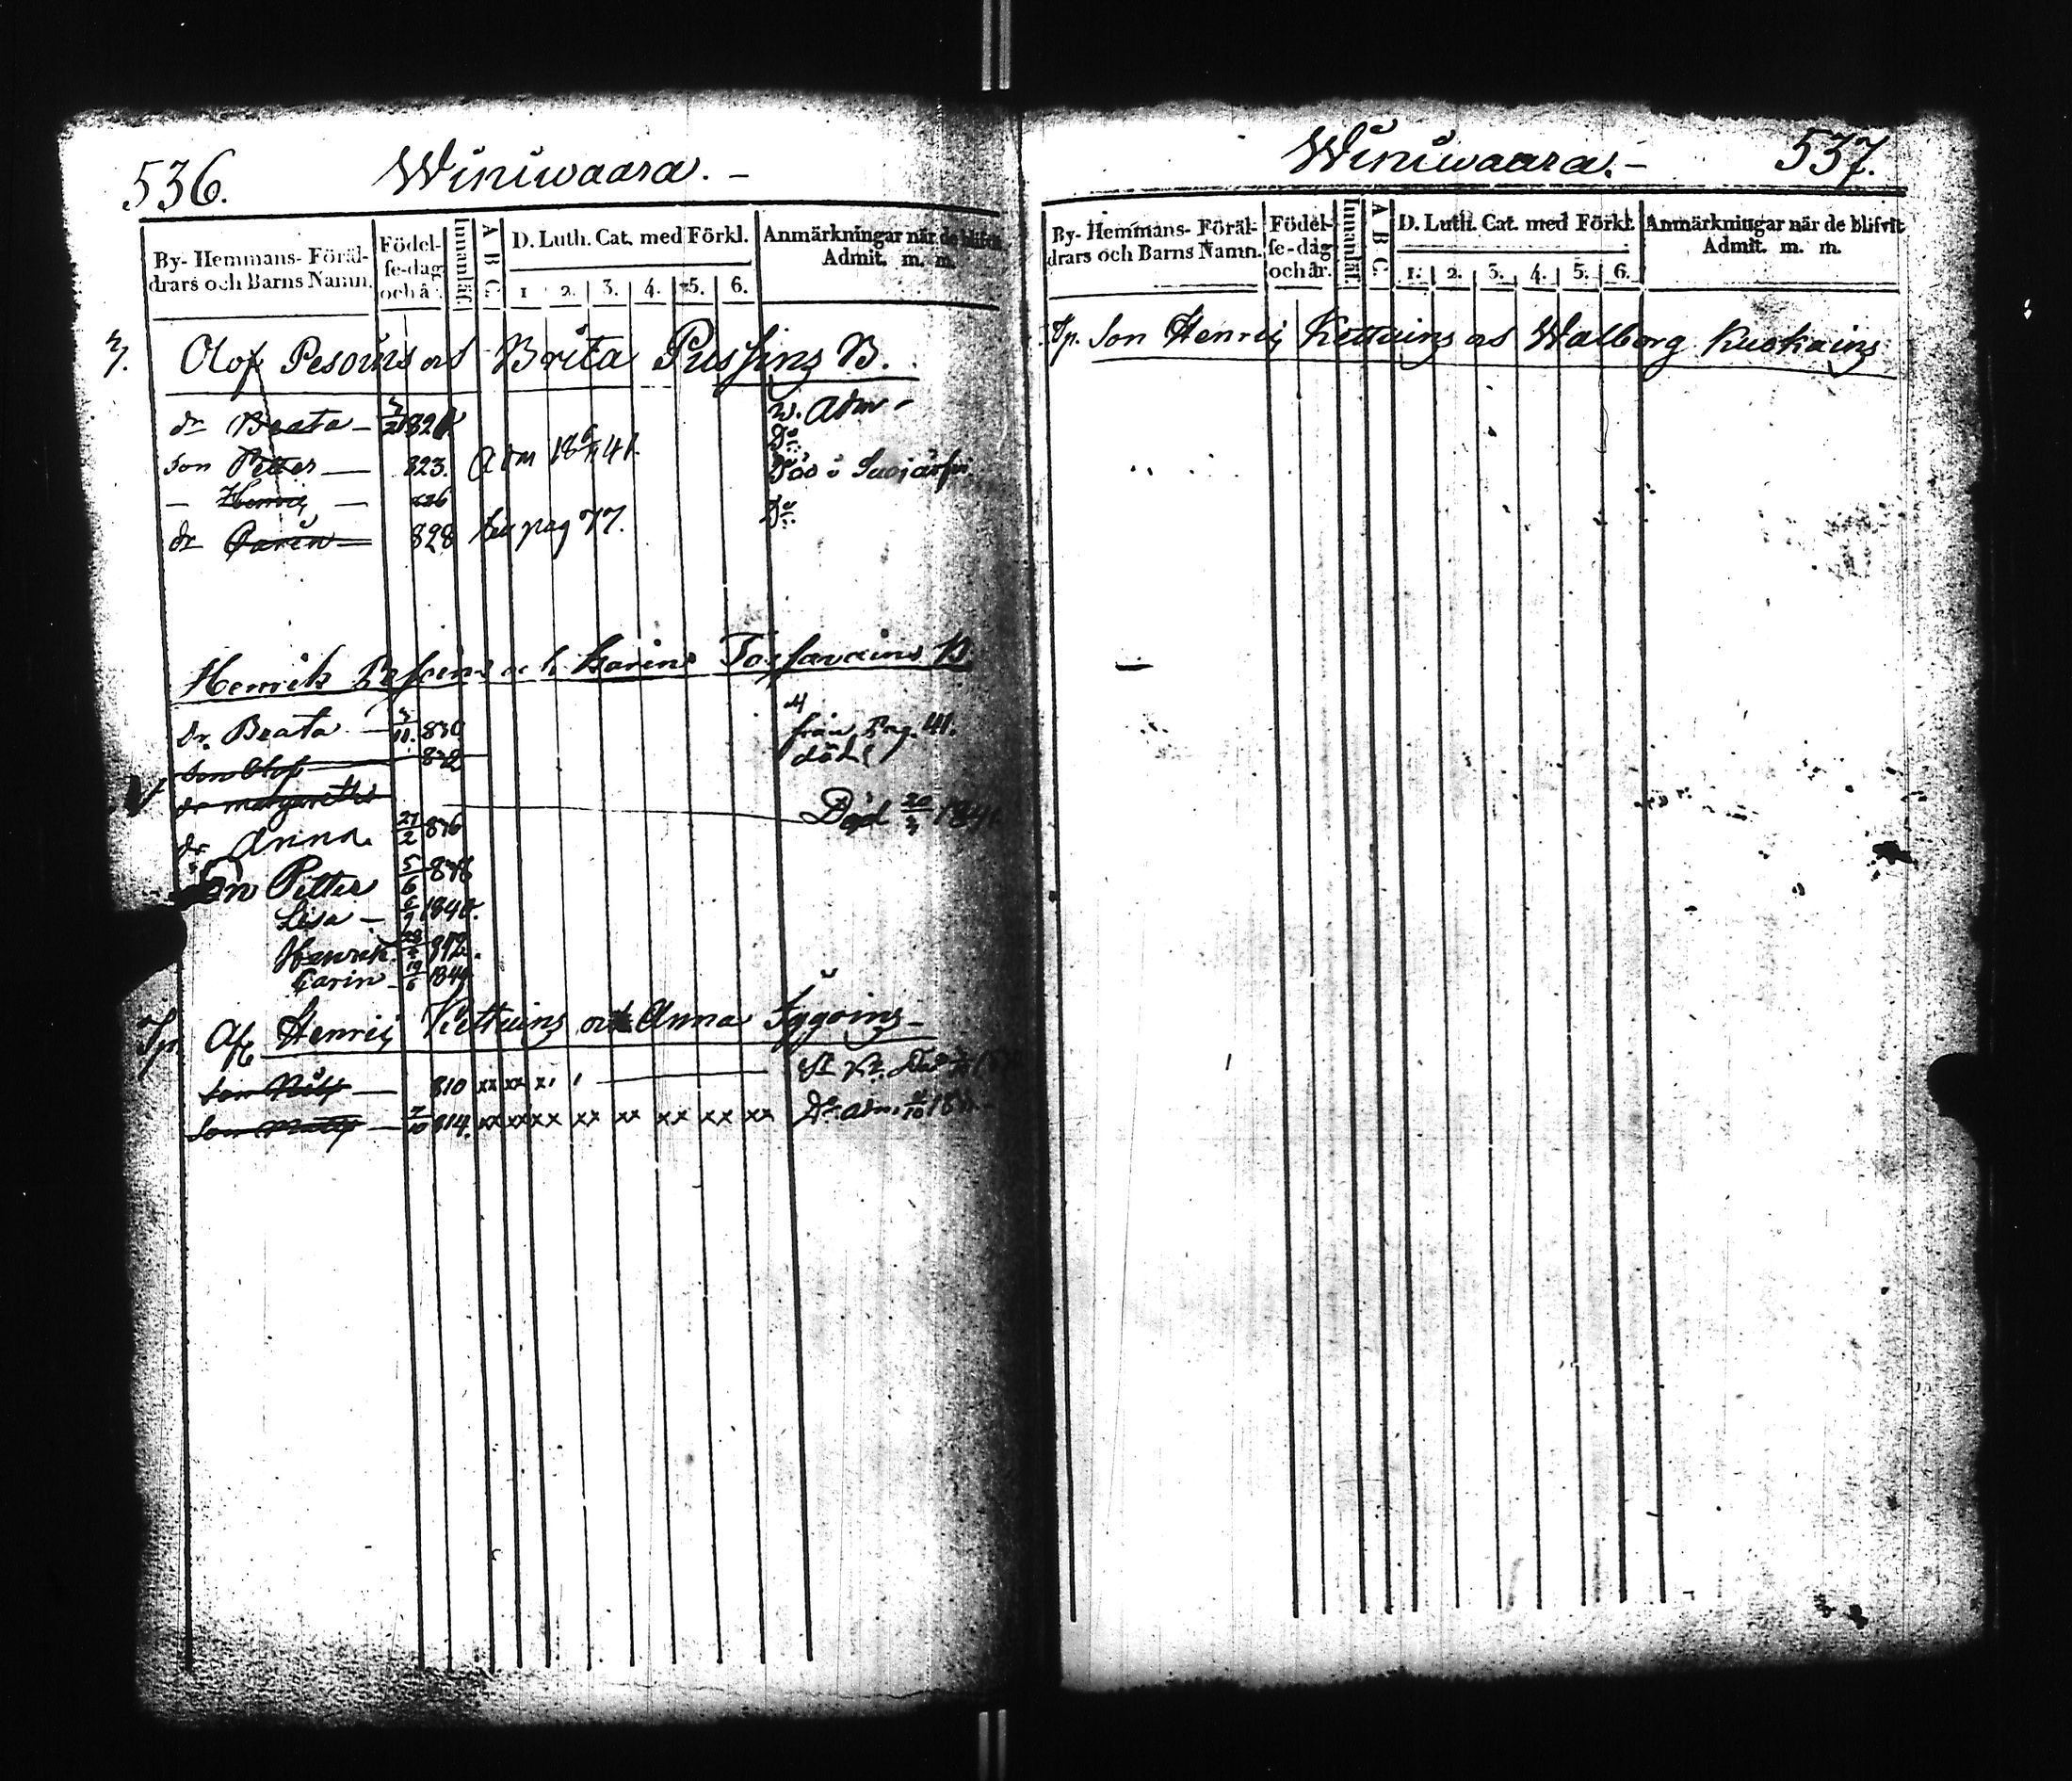 536. Winiwaara. –
By- Hemmans- Föräl-
drars och Barns Namn.
Födel-
se-dag
och å
Innanläs.
A B C.
D. Luth. Cat. med Förkl.
1 2. 3. 4. 5. 6.
Anmärkningar när de blifvit
Admit. m. m.
Olof Pesoins och Brita Pussins B.
dr Beata – 3/21 82 w. Adm –
son Petter — 823. Adm 18 41 Do
– Henric — 826 Död i Suojärfvi
dr Carin — 828 se pag 77. Do
Henrik och Karins B
dr. Beata — 3/11. 830
från Pag. 41.
son Olof 832 död
dr margaretha
dr Anna 27/2 836 Död 20/3
Son Petter 5/6 838
Lisa – 6/9 1840.
Henrik 842.
Carin – 19/6 1844
Af Henric Kettuins och Anna
son Nils — 810 xx xx x
Son Matts — 7/10 814. xx xx xx xx xx xx xx xx Do adm.
Winiwaara. – 537.
By- Hemmans- Föräl-
drars och Barns Namn.
Födel-
se-dag
och år.
Innanläs.
A B C.
D. Luth. Cat. med Förkl.
1. 2. 3. 4. 5. 6.
Anmärkningar när de blifvit
Admit. m. m.
Son Henric Kettuins och Walborg Kuokains